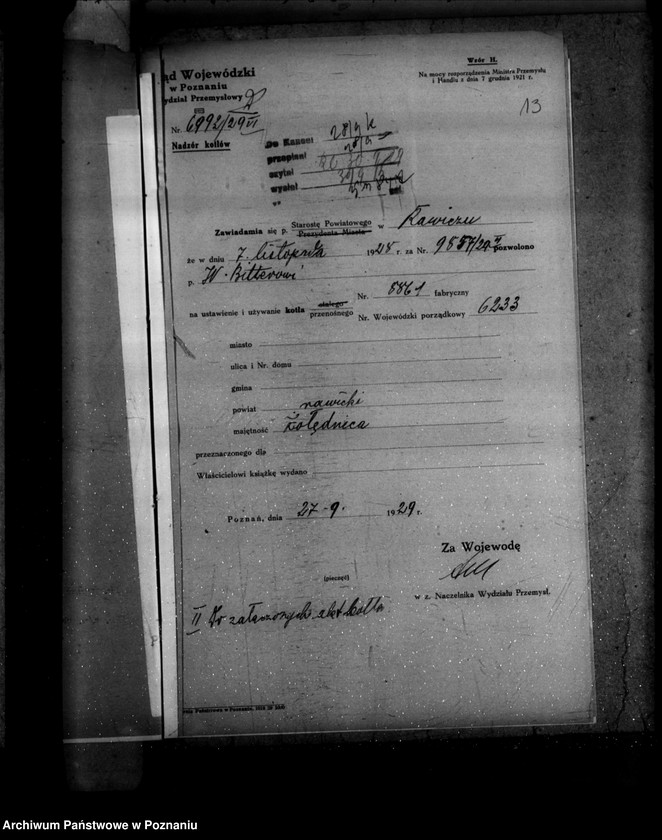 Wzór H.
Na mocy rozporządzenia Ministra Przemysłu
i Handlu z dnia 7 grudnia 1921 r.
13
ąd Wojewódzki
w Poznaniu
ydział Przemysłowy
Nr. 6992/29 VI
Nadzór kotłów
Do Kanc. 28/9
przepisał
czytał
wysłał
Zawiadamia się p. Starostę Powiatowego w Rawiczu
Prezydenta Miasta
że w dniu 7. listopada 1928 r. za Nr. 9857/29 VI pozwolono
p. W. Bitterowi
na ustawienie i używanie kotła stałego przenośnego
Nr. 8861 fabryczny
Nr. Wojewódzki porządkowy 6233
miasto
ulica i Nr. domu
gmina
powiat rawicki
majętność Żołędnica
przeznaczonego dla
Właścicielowi książkę wydano
Poznań, dnia 27-9. 1929 r.
Za Wojewodę
(pieczęć)
w z. Naczelnika Wydziału Przemysł.
II Do załączonych akt kotła
Archiwum Państwowe w Poznaniu